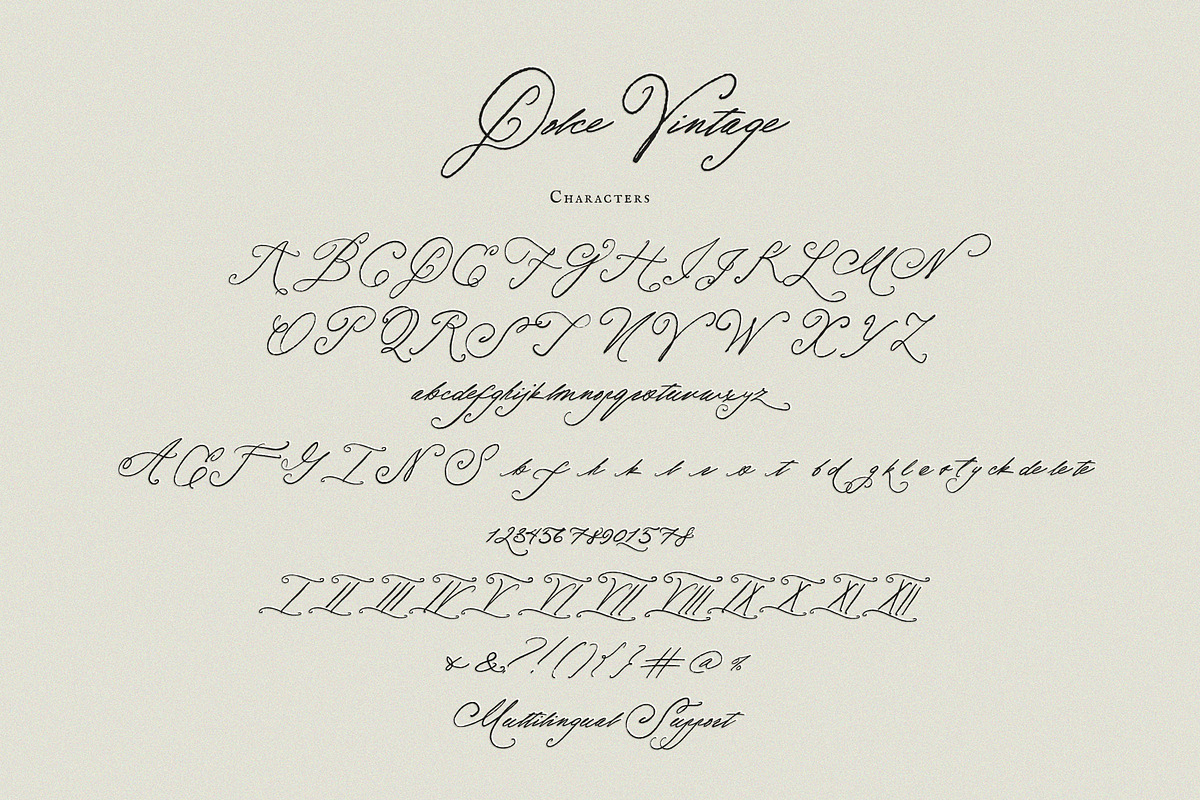 Dolce Vintage
Characters
A B C D E F G H I J K L M N
O P Q R S T U V W X Y Z
abcdefghijklmnopqrstuvwxyz
A C E F G I N S b f h k l r o t bd g k l e r ty ck de le te
12345678901578
I II III IV V VI VII VIII IX X XI XII
& & ? ! ( ) { } # @ %
Multilingual Support